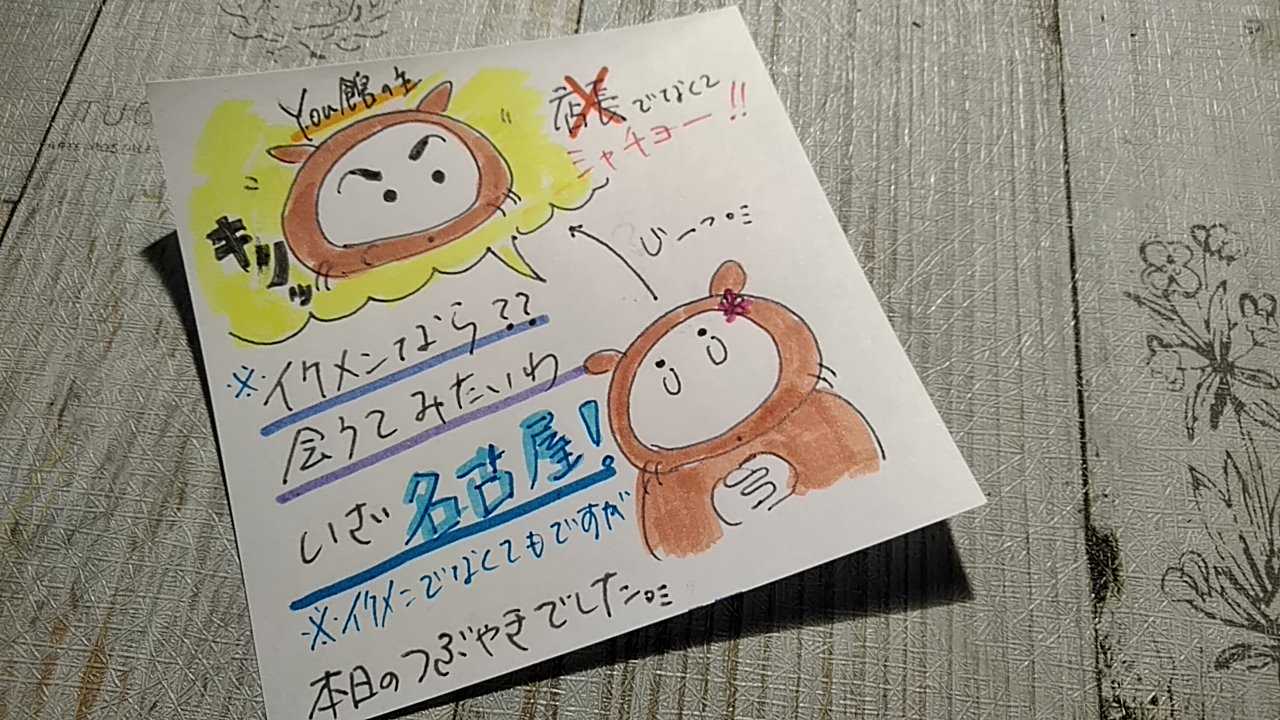 You館の主
店長でなくて
ミャチョー!!
キリッ
じーっ
※イケメンなら??
会うてみたいわ
いざ名古屋!
※イケメンでなくてもですが
本日のつぶやきでした